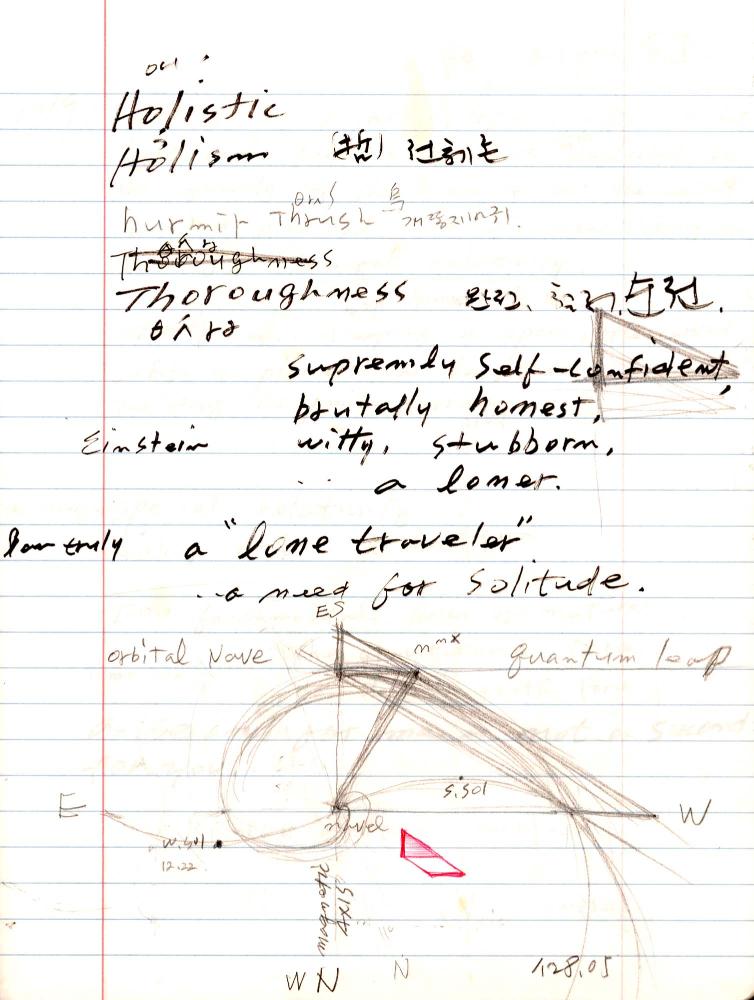 Holistic
Holism (哲) 전체론
hurmit Thrush
Thoroughness
Thoroughness 완전, 철저, 순전.
supremly self-confident,
brutally honest,
Einstein witty, stubborn,
.. a loner.
I am truly a "lone traveler"
..a need for solitude.
ES
orbital Nave quantum leap
s.sol
E W
navel
w.sol
12.22
magnetic axis
WN N 1.28.05